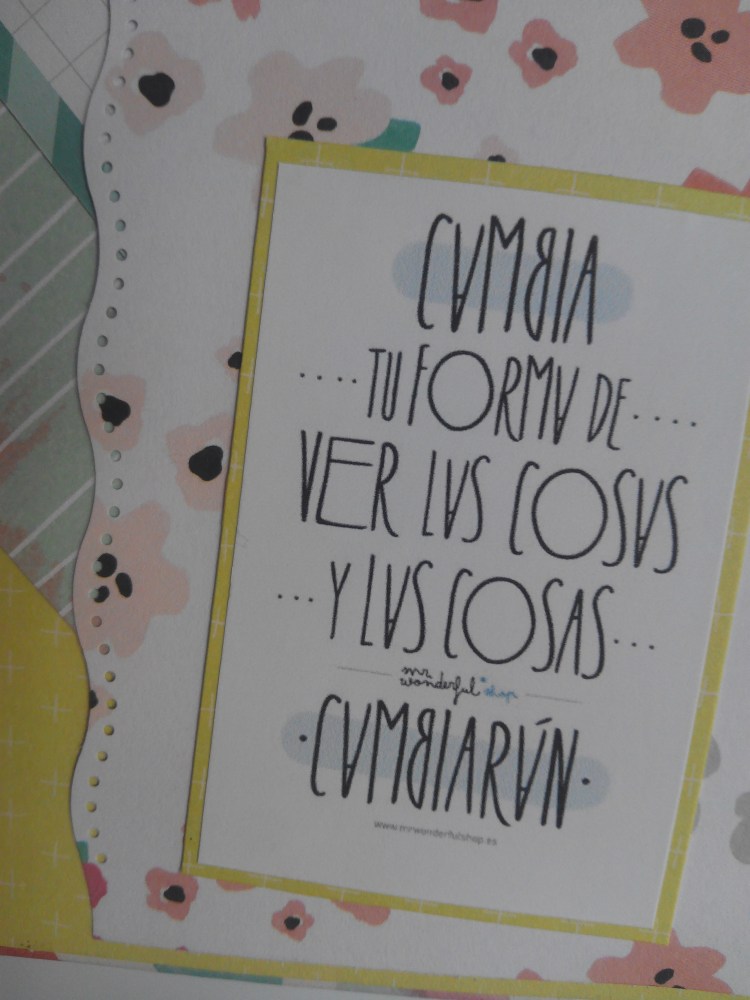 CAMBIA
....TU FORMA DE....
VER LAS COSAS
...Y LAS COSAS...
mr.
wonderful*shop
·CAMBIARÁN·
www.mrwonderfulshop.es